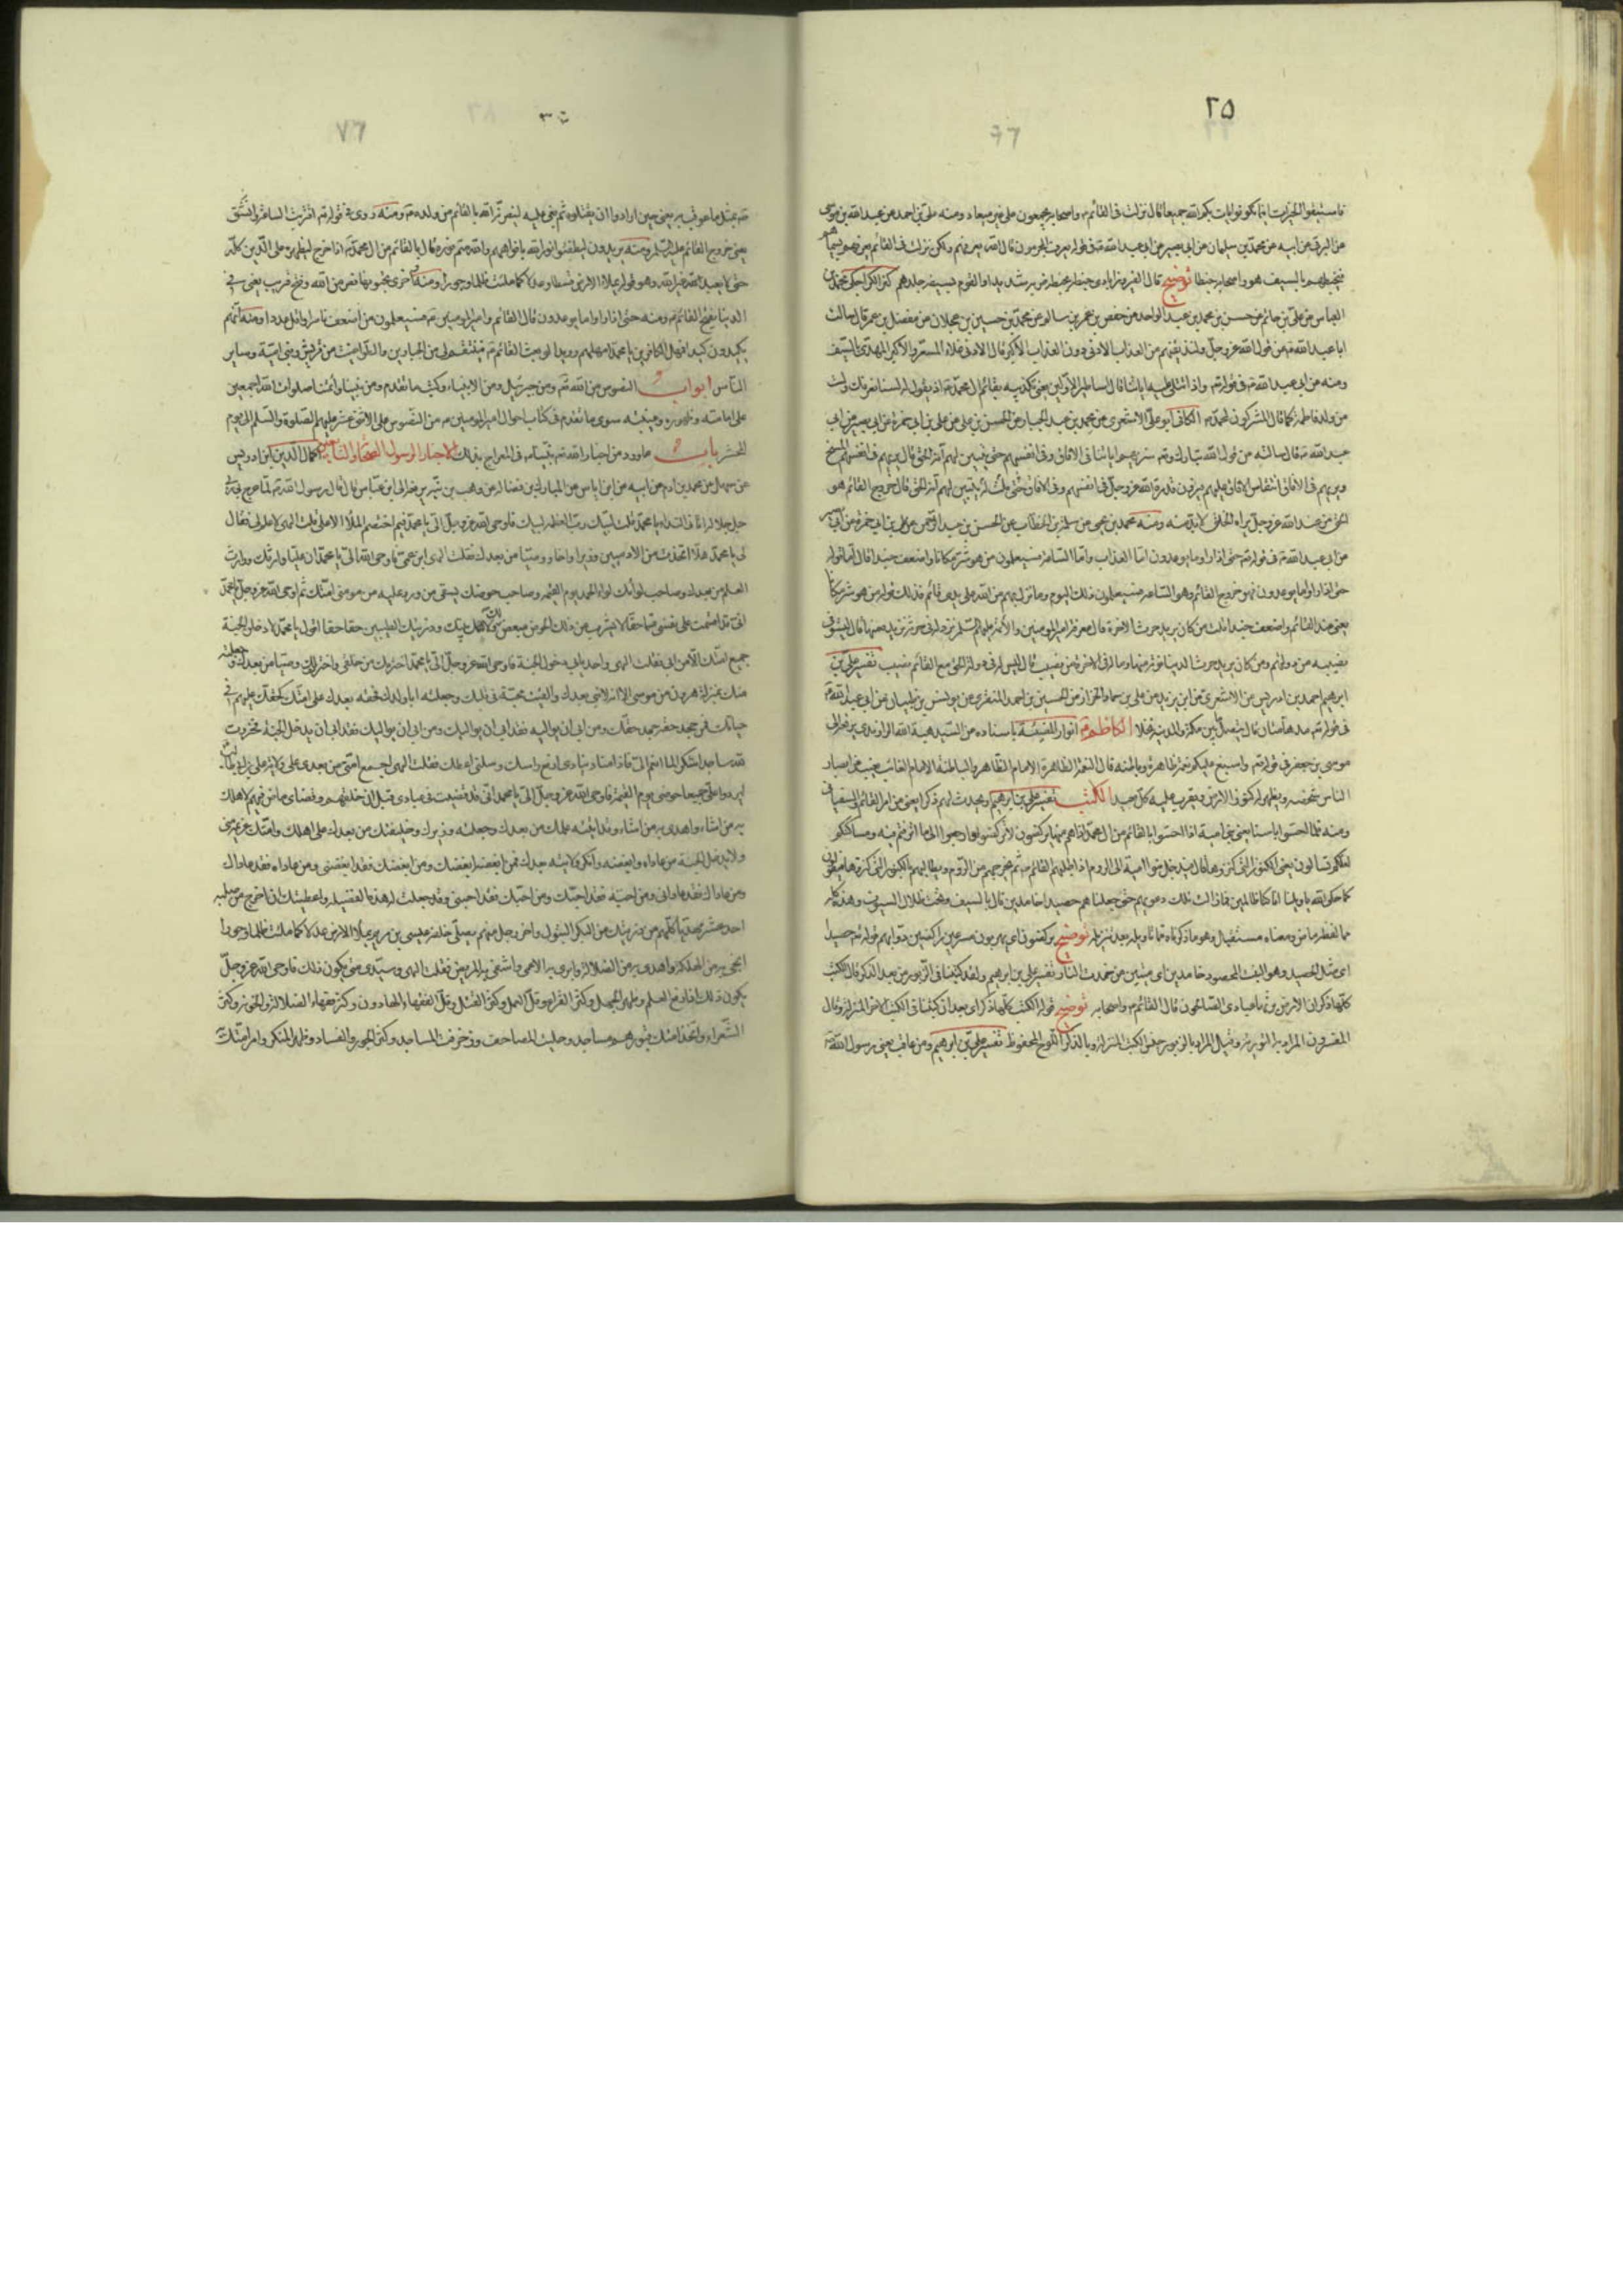 ٢٥
فاستبقوا الخيرات اينما تكونوا يأت بكم الله جميعا قال نزلت فى القائم و اصحابه يجمعون على غير ميعاد ومنه على بن احمد عن عبيد الله بن موسى
عن البرقى عن ابيه عن محمد بن سليمان عن ابى بصير عن ابى عبد الله فى قوله يعرف المجرمون قال الله يعرفهم ولكن نزلت فى القائم يعرفهم بسيماهم
فيخبطهم بالسيف هو واصحابه خبطا توضيح قال الفيروزابادى خبطه يخبطه ضربه شديدا والقوم بسيفه جلدهم كنز الكراجكى محمد بن
العباس عن على بن حاتم عن حسن بن محمد بن عبد الواحد عن حفص بن عمر بن سالم عن محمد بن حسين بن عجلان عن مفضل بن عمر قال سالت
ابا عبد الله عن قول الله عز وجل ولنذيقنهم من العذاب الادنى دون العذاب الاكبر قال الادنى غلاء السعر والاكبر المهدى بالسيف
ومنه عن ابى عبد الله فى قوله واذا تتلى عليه اياتنا قال اساطير الاولين يعنى تكذيبه بقائم ال محمد اذ يقول له لسنا نعرفك ولست
من ولد فاطمة كما قال المشركون لمحمد الكافى ابو على الاشعرى عن محمد بن عبد الجبار عن الحسن بن على عن على بن ابى حمزة عن ابى بصير عن ابى
عبد الله قال سالته عن قول الله تبارك وتعالى سنريهم اياتنا فى الافاق وفى انفسهم حتى يتبين لهم انه الحق قال يريهم فى انفسهم المسخ
ويريهم فى الافاق انتقاض الافاق عليهم فيرون قدرة الله عز وجل فى انفسهم وفى الافاق قلت له حتى يتبين لهم انه الحق قال خروج القائم هو
الحق من عند الله عز وجل يراه الخلق لا بد منه ومنه محمد بن يحيى عن سلمة بن الخطاب عن الحسن بن عبد الرحمن عن على بن ابى حمزة عن ابى بصير
عن ابى عبد الله فى قوله حتى اذا راوا ما يوعدون اما العذاب واما الساعة فسيعلمون من هو شر مكانا واضعف جندا قال اما قوله
حتى اذا راوا ما يوعدون فهو خروج القائم وهو الساعة فسيعلمون ذلك اليوم وما نزل بهم من الله على يدى قائمه فذلك قوله من هو شر مكانا
يعنى عند القائم واضعف جندا قلت من كان يريد حرث الاخرة قال معرفة امير المومنين والائمة عليهم السلم نزد له فى حرثه نزيده منها قال يستوفى
نصيبه من دولتهم ومن كان يريد حرث الدنيا نؤته منها وما له فى الاخرة من نصيب قال ليس له فى دولة الحق مع القائم نصيب تفسير على بن
ابرهيم احمد بن ادريس عن الاشعرى عن ابن يزيد عن على بن حماد الخزاز عن الحسين بن احمد المنقرى عن يونس بن ظبيان عن ابى عبد الله
فى قوله مدهامتان قال يتصل ما بين مكة والمدينة نخلا الكاظم انوار المضيئة باسناده عن السيد هبة الله الراوندى يرفعه الى
موسى بن جعفر فى قوله واسبغ عليكم نعمه ظاهرة وباطنة قال النعمة الظاهرة الامام الظاهر والباطنة الامام الغائب يغيب عن ابصار
الناس شخصه ويظهر له كنوز الارض ويقرب عليه كل بعيد الكتب تفسير على بن ابرهيم او يحدث لهم ذكرا يعنى من امر القائم والسفيانى
ومنه فلما احسوا باسنا يعنى بنى امية اذا احسوا بالقائم من ال محمد اذا هم منها يركضون لا تركضوا وارجعوا الى ما اترفتم فيه ومساكنكم
لعلكم تسالون يعنى الكنوز التى كنزوها قال فيدخل بنو امية الى الروم اذا طلبهم القائم ثم يخرجهم من الروم ويطالبهم بالكنوز التى كنزوها فيقولون
كما حكى الله يا ويلنا انا كنا ظالمين فما زالت تلك دعويهم حتى جعلناهم حصيدا خامدين قال بالسيف وتحت ظلال السيوف وهذا كله
مما لفظه ماض ومعناه مستقبل وهو ما ذكرناه مما تاويله بعد تنزيله توضيح يركضون اى يهربون مسرعين راكضين دوابهم قوله حصيدا
اى مثل الحصيد وهو النبت المحصود خامدين اى ميتين من خمدت النار تفسير على بن ابرهيم ولقد كتبنا فى الزبور من بعد الذكر قال الكتب
كلها ذكر ان الارض يرثها عبادى الصالحون قال القائم واصحابه توضيح قوله الكتب كلها ذكر اى بعد ان كتبنا فى الكتب الاخر المنزلة وقال
المفسرون المراد به التورية وقيل المراد بالزبور جنس الكتب المنزلة وبالذكر اللوح المحفوظ تفسير على بن ابرهيم ومن عاقب يعنى رسول الله
٧٦
بمثل ما عوقب به يعنى حين ارادوا ان يقتلوه ثم بغى عليه لينصرنه الله بالقائم من ولده ومنه روى فى قوله اقتربت الساعة وانشق
يعنى خروج القائم عليه السلم ومنه يريدون ليطفئوا نور الله بافواههم والله متم نوره قال بالقائم من ال محمد اذا خرج ليظهره على الدين كله
حتى لا يعبد غير الله وهو قوله يملا الارض قسطا وعدلا كما ملئت ظلما وجورا ومنه واخرى تحبونها نصر من الله وفتح قريب يعنى فى
الدنيا بفتح القائم ومنه حتى اذا راوا ما يوعدون قال القائم وامير المومنين فسيعلمون من اضعف ناصرا واقل عددا ومنه انهم
يكيدون كيدا فمهل الكافرين يا محمد امهلهم رويدا لو بعث القائم فينتقم لى من الجبارين والطواغيت من قريش وبنى امية وساير
الناس ابواب النصوص من الله ومن جبرئيل ومن الانبياء وكتب ما تقدم ومن نبينا وائمتنا صلوات الله اجمعين
على امامته وظهوره وغيبته سوى ما تقدم فى كتاب احوال امير المومنين من النصوص على الاثنى عشر عليهم الصلوة والسلم الى يوم
الحشر باب ما ورد من اخبار الله نبيه فى المعراج بذلك الاخبار الرسول الصحابة والتابعين كمال الدين ابن ادريس
عن سهل عن محمد بن ادم عن ابيه عن ابن اياس عن المبارك بن فضالة عن وهب بن منبه يرفعه الى ابن عباس قال قال رسول الله لما عرج بى ربى
جل جلاله اتانى النداء يا محمد قلت لبيك رب العظمة لبيك فاوحى الله عز وجل الى يا محمد فيم اختصم الملأ الاعلى قلت الهى لا علم لى فقال
لى يا محمد هلا اتخذت من الادميين وزيرا واخا ووصيا من بعدك فقلت الهى ابن عمى فاوحى الله الى يا محمد ان عليا وارثك ووارث
العلم من بعدك وصاحب لوائك لواء الحمد يوم القيمة وصاحب حوضك يسقى من ورد عليه من مومنى امتك ثم اوحى الله عز وجل يا محمد
انى قد اقسمت على نفسى قسما حقا لا يشرب من ذلك الحوض مبغض لك ولاهل بيتك وذريتك الطيبين حقا حقا اقول يا محمد لادخلن الجنة
جميع امتك الا من ابى فقلت الهى واحد يابى دخول الجنة فاوحى الله عز وجل الى يا محمد اخترتك من خلقى واخترت لك وصيا من بعدك وجعلته
منك بمنزلة هرون من موسى الا انه لا نبى بعدك والقيت محبة فى قلبك وجعلته ابا لولدك فحقه بعدك على امتك كحقك عليهم فى
حياتك فمن جحد حقه جحد حقك ومن ابى ان يواليه فقد ابى ان يواليك ومن ابى ان يواليك فقد ابى ان يدخل الجنة فخررت
لله ساجدا شكرا لما انعم الى فاذا مناد ينادى ارفع راسك وسلنى اعطك فقلت الهى اجمع امتى من بعدى على ولاية على بن ابى طالب
ليردوا على جميعا حوضى يوم القيمة فاوحى الله عز وجل الى يا محمد انى قد قضيت فى عبادى قبل ان خلقهم وقضاى ماض فيهم لاهلك
به من اشاء واهدى به من اشاء وقد اتيته علمك من بعدك وجعلته وزيرك وخليفتك من بعدك على اهلك وامتك عزيمة منى
ولا يدخل الجنة من عاداه وابغضه وانكر ولايته بعدك فمن ابغضه ابغضك ومن ابغضك فقد ابغضنى ومن عاداه فقد عاداك
ومن عاداك فقد عادانى ومن احبه فقد احبك ومن احبك فقد احبنى وقد جعلت له هذه الفضيلة واعطيتك ان اخرج من صلبه
احد عشر مهديا كلهم من ذريتك من البكر البتول واخر رجل منهم يصلى خلفه عيسى بن مريم يملا الارض عدلا كما ملئت ظلما وجورا
انجى به من الهلكة واهدى به من الضلالة وابرى به الاعمى واشفى به المريض فقلت الهى وسيدى متى يكون ذلك فاوحى الله عز وجل
يكون ذلك اذا رفع العلم وظهر الجهل وكثر القراء وقل العمل وكثر القتل وقل الفقهاء الهادون وكثر فقهاء الضلالة والخونة وكثر
الشعراء واتخذ امتك قبورهم مساجد وحليت المصاحف وزخرفت المساجد وكثر الجور والفساد وظهر المنكر وامر امتك